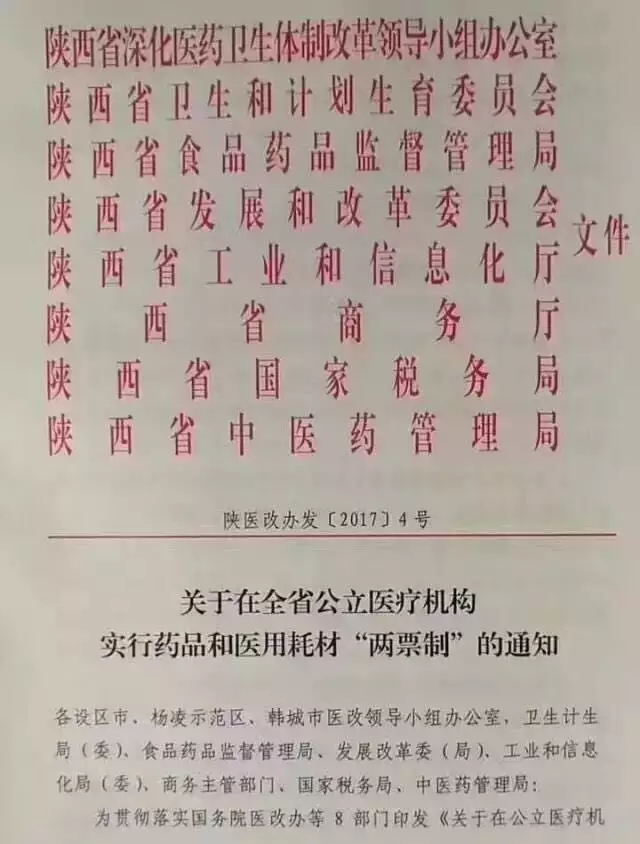 陕西省深化医药卫生体制改革领导小组办公室
陕西省卫生和计划生育委员会
陕西省食品药品监督管理局
陕西省发展和改革委员会
陕西省工业和信息化厅
陕西省商务厅
陕西省国家税务局
陕西省中医药管理局
文件
陕医改办发〔2017〕4号
关于在全省公立医疗机构
实行药品和医用耗材“两票制”的通知
各设区市、杨凌示范区、韩城市医改领导小组办公室，卫生计生
局（委）、食品药品监督管理局、发展改革委（局）、工业和信息
化局（委）、商务主管部门、国家税务局、中医药管理局：
为贯彻落实国务院医改办等 8 部门印发《关于在公立医疗机